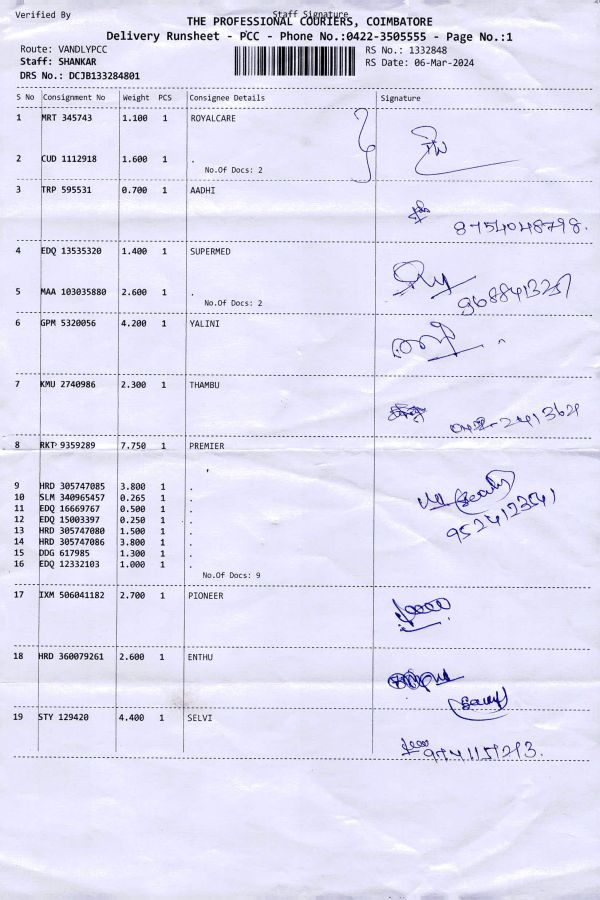 Verified By Staff Signature
THE PROFESSIONAL COURIERS, COIMBATORE
Delivery Runsheet - PCC - Phone No.:0422-3505555 - Page No.:1
Route: VANDLYPCC RS No.: 1332848
Staff: SHANKAR RS Date: 06-Mar-2024
DRS No.: DCJB133284801
S No Consignment No Weight PCS Consignee Details Signature
1 MRT 345743 1.100 1 ROYALCARE
2 CUD 1112918 1.600 1 .
No.Of Docs: 2
3 TRP 595531 0.700 1 AADHI
8754048798.
4 EDQ 13535320 1.400 1 SUPERMED
5 MAA 103035880 2.600 1 .
No.Of Docs: 2
6 GPM 5320056 4.200 1 YALINI
7 KMU 2740986 2.300 1 THAMBU
8 RKT 9359289 7.750 1 PREMIER
9 HRD 305747085 3.800 1 .
10 SLM 340965457 0.265 1 .
11 EDQ 16669767 0.500 1 .
12 EDQ 15003397 0.250 1 .
13 HRD 305747080 1.500 1 .
14 HRD 305747086 3.800 1 .
15 DDG 617985 1.300 1 .
16 EDQ 12332103 1.000 1 .
No.Of Docs: 9
17 IXM 506041182 2.700 1 PIONEER
18 HRD 360079261 2.600 1 ENTHU
19 STY 129420 4.400 1 SELVI